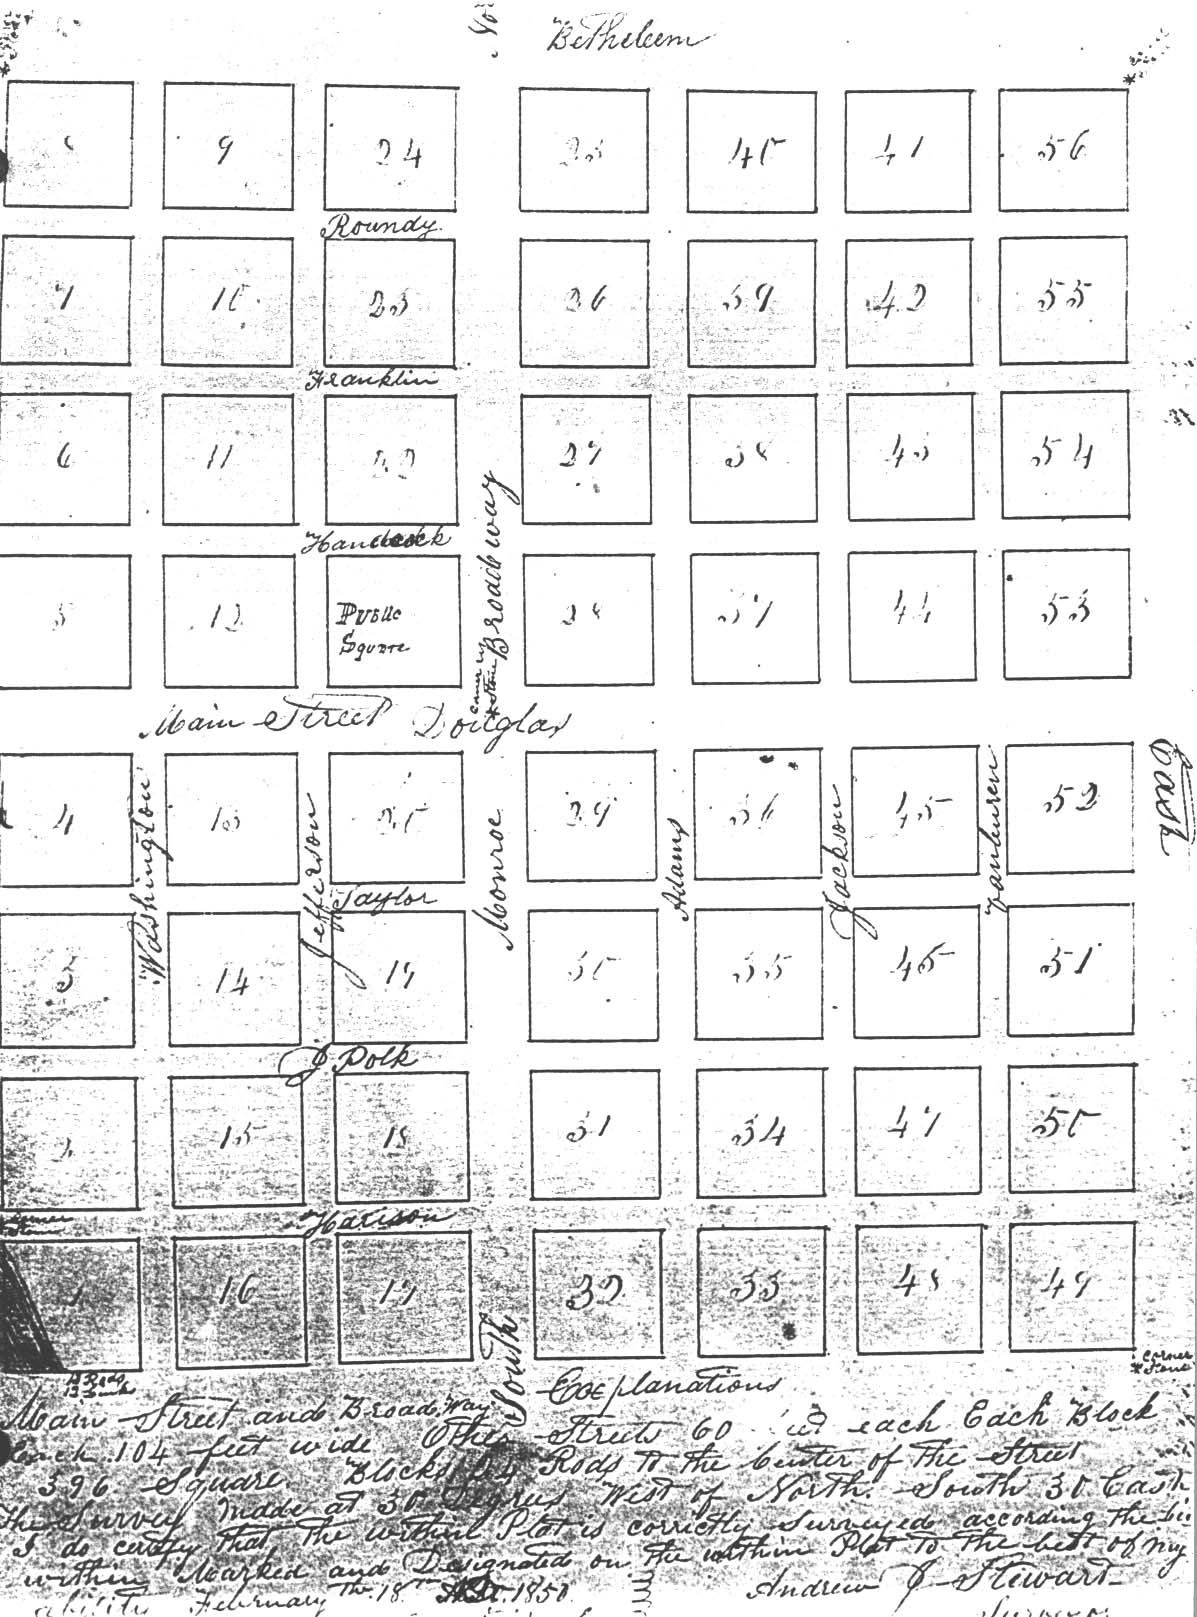 Bethelem
9 24 40 41 56
Roundy.
7 10 23 26 39 42 55
Franklin
6 11 22 27 38 43 54
Handcock
5 12 Public 28 37 44 53
Square
Broadeway
Main Street Douglas
East
4 13 20 29 36 45 52
Washington
Jefferson
Monroe
Adams
Jackson
Vanburen
Taylor
3 14 19 30 35 46 51
J Polk
2 15 18 31 34 47 50
Corner
Stone
Harison
1 16 17 32 33 48 49
South
Corner
Stone
Exeplanations
Main Street and Broad Way
Each 104 feet wide Other Streets 60 each Each Block
396 Square Blocks Rods to the Center of the Street
The Survey Made at 30 Degrees West of North. South 30 East
I do certify that the within Plat is correctly Surveyed according the
within Marked and Designated on the within Plat to the best of my
ability February 18 1850
Andrew J Stewart